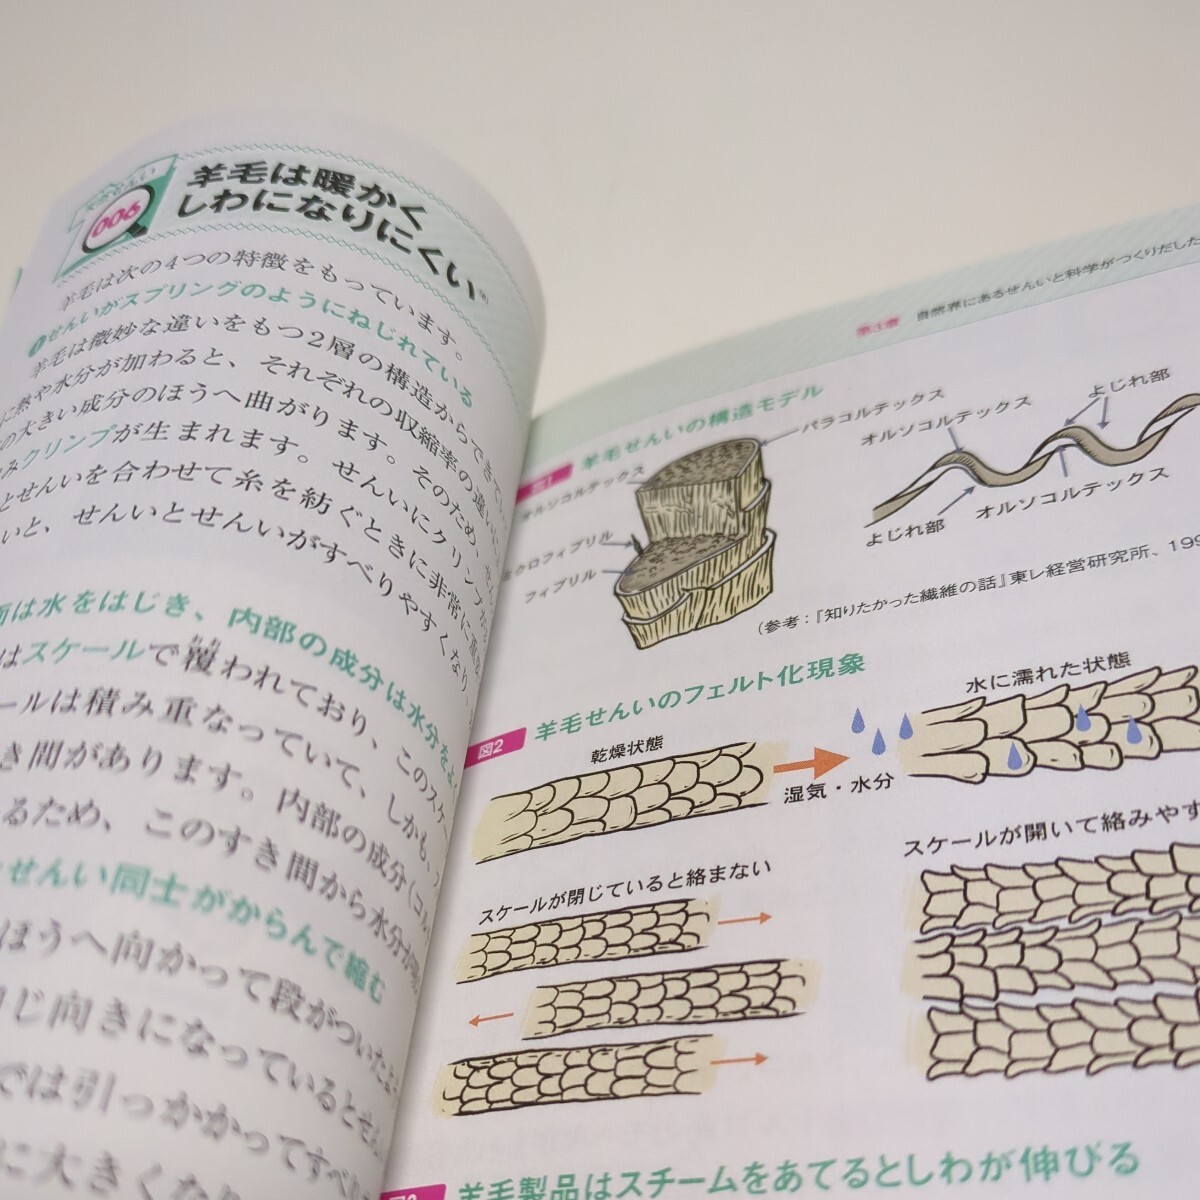 006
羊毛は暖かく
しわになりにくい
羊毛は次の4つの特徴をもっています。
せんいがスプリングのようにねじれている
羊毛は微妙な違いをもつ2層の構造からでき
に熱や水分が加わると、それぞれの収縮率の違い
の大きい成分のほうへ曲がります。そのため、
みクリンプが生まれます。せんいにクリンプが
とせんいを合わせて糸を紡ぐときに非常に重要
いと、せんいとせんいがすべりやすくなり
面は水をはじき、内部の成分は水分をよく
はスケールで覆われており、このスケ
ールは積み重なっていて、しかも、
き間があります。内部の成分(コル
るため、このすき間から水分が
せんい同士がからんで縮む
ほうへ向かって段がついた
同じ向きになっているとせん
では引っかかってすべ
に大きくな
第3章 自然界にあるせんいと科学がつくりだした
図1 羊毛せんいの構造モデル
オルソコルテックス
パラコルテックス
ミクロフィブリル
フィブリル
オルソコルテックス
よじれ部
よじれ部
オルソコルテックス
(参考:『知りたかった繊維の話』東レ経営研究所、199
図2 羊毛せんいのフェルト化現象
乾燥状態
湿気・水分
水に濡れた状態
スケールが閉じていると絡まない
スケールが開いて絡みやす
羊毛製品はスチームをあてるとしわが伸びる